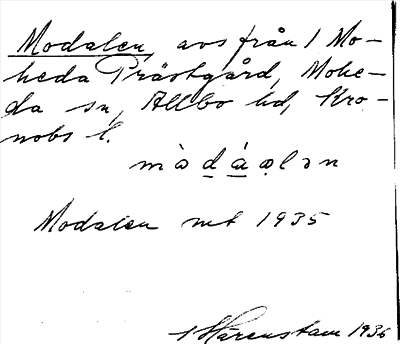 Modalen, avs från 1 Mo-
heda Prästgård, Mohe-
da sn, Allbo hd, Kro-
nobs l.
Modalen mt 1935
Härenstam 1936